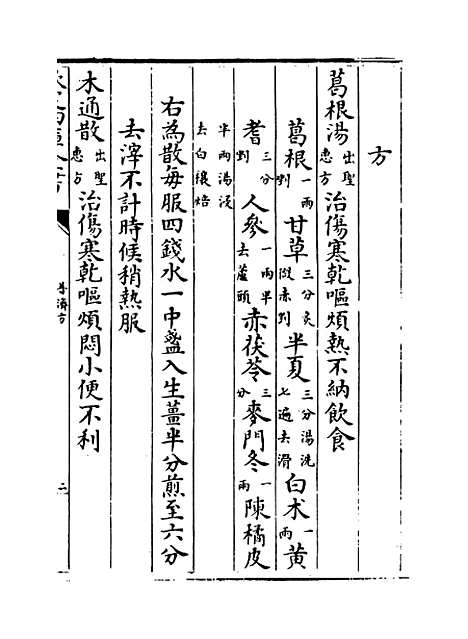 方
葛根湯出聖惠方治傷寒乾嘔煩熱不納飲食
葛根一兩剉甘草三分炙微赤剉半夏三分湯洗七遍去滑白术一兩黃
耆三分剉人參一兩半去蘆頭赤茯苓三分麥門冬一兩陳橘皮
半兩湯浸去白穰焙
右為散每服四錢水一中盞入生薑半分煎至六分
去滓不計時候稍熱服
木通散出聖惠方治傷寒乾嘔煩悶小便不利
普濟方
二